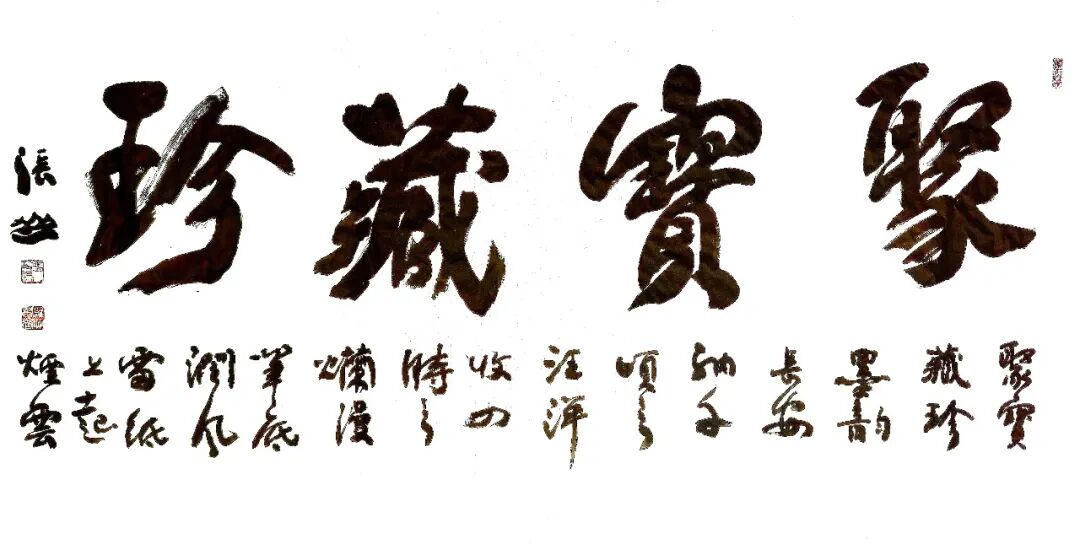 聚寶藏珍
聚寶
藏珍
墨韵
長安
納千
頃之
汪洋
收四
時之
爛漫
筆底
潤風
雷紙
上起
煙雲
張